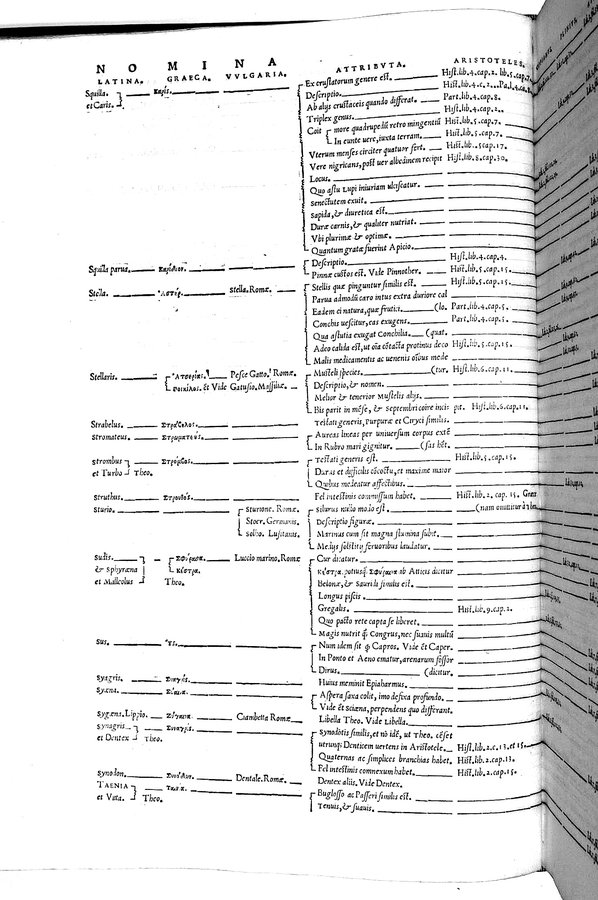 NOMINA
LATINA. GRAECA. VVLGARIA. ATTRIBVTA. ARISTOTELES.
Squilla et Caris. Καρίς. Ex crustatorum genere est. Hist.lib.4.cap.2. lib.5.cap.7.
Descriptio. Hist.lib.4.c.2.
Ab alijs crustaceis quando differat. Part.lib.4.cap.8.
Triplex genus. Hist.lib.4.cap.2.
Coit more quadrupedū retro mingentiū Hist.lib.5.cap.7.
In eunte uere, iuxta terram. Hist.lib.5.cap.7.
Vterum menses circiter quatuor fert. Hist.lib.5.cap.17.
Vere nigricans, post uer albedinem recipit Hist.lib.5.cap.30.
Locus.
Quo astu Lupi iniuriam ulciscatur.
Senectutem exuit.
Sapida, & diuretica est.
Durae carnis, & qualiter nutriat.
Vbi plurimae & optimae.
Quantum gratae fuerint Apicio.
Squilla parua. Καρίδιον. Descriptio. Hist.lib.4.cap.4.
Pinnae custos est. Vide Pinnother. Hist.lib.5.cap.15.
Stella. Ἀστέρ. Stella. Romae. Stellis quae pinguntur similis est. Hist.lib.5.cap.15.
Parua admodū caro intus extra duriore cal
Eadem ei natura, quae frutici. (lo. Part.lib.4.cap.5.
Conchis uescitur, eas exugens. Part.lib.4.cap.5.
Qua astutia exugat Conchilia. (quat.
Adeo calida est, ut oīa cōtacta protinus deco Hist.lib.5.cap.15.
Malis medicamentis ac uenenis oībus mede
Stellaris. Ἀστερίας. Pesce Gatto. Romae Mustelī species. (tur. Hist.lib.6.cap.11.
ποικίλος. et Vide Gatusio. Massiliae. Descriptio, & nomen.
Melior & tenerior Mustelis alijs.
Bis parit in mēse, & Septembri coire incipit. Hist.lib.6.cap.11.
Strabelus. Στράβελος. Testati generis, Purpurae et Ceryci similis.
Stromateus. Στρωματεύς. Aureas lineas per uniuersum corpus extē
In Rubro mari gignitur. (sas hēt.
Strombus et Turbo Theo. Στρόμβος. Testati generis est. Hist.lib.5.cap.15.
Duras et difficilis cōcoctu, et maxime maior
Quibus medeatur affectibus.
Struthus. Στρουθός. Fel intestinis commissum habet. Hist.lib.2.cap.15.
Sturio. Sturione. Romae. Silurus nullo modo est. (nam
Stoer. Germanis. Descriptio figurae.
Solho. Lusitanis. Marinus cum sit magna flumina subit.
Melius solstitij feruoribus laudatur.
Sudis. & Sphyraena et Malleolus Theo. Σφύραινα. Κέστρα. Luccio marino. Romae Cur dicatur.
Κέστρα potius Σφύραινα ab Atticis dicitur
Belonae, & Sauridi similis est.
Longus piscis.
Gregalis. Hist.lib.9.cap.2.
Quo pacto rete capta se liberet.
Magis nutrit q̄ Congrus, nec suauis multū
Sus. Ὗς. Num idem sit q̄ Capros. Vide & Caper.
In Ponto et Aeno ematur, arenarum fossor
Dirus. (dicitur.
Syagris. Συαγρίς. Huius meminit Epicharmus.
Syaena. Σύαινα. Aspera saxa colit, imo defixa profundo.
Vide & Sciaena, perpendens quo differant.
Sygaena. Lippio. Ζύγαινα. Ciambetta Romae Libella Theo. Vide Libella.
Synagris et Dentex Theo. Συναγρίς. Synoditis similis, et nō idē, ut Theo. cēset
uerunq; Denticem uertens in Aristotele. Hist.lib.2.c.13. et 15.
Quaternas ac simplices branchias habet. Hist.lib.2.cap.13.
Fel intestinis connexum habet. Hist.lib.2.cap.15.
Synodon. Συνόδων. Dentale. Romae. Dentex aliis. Vide Dentex.
TAENIA et Vitta. Theo. Ταινία. Buglosso ac Passeri similis est.
Tenuis, & suauis.